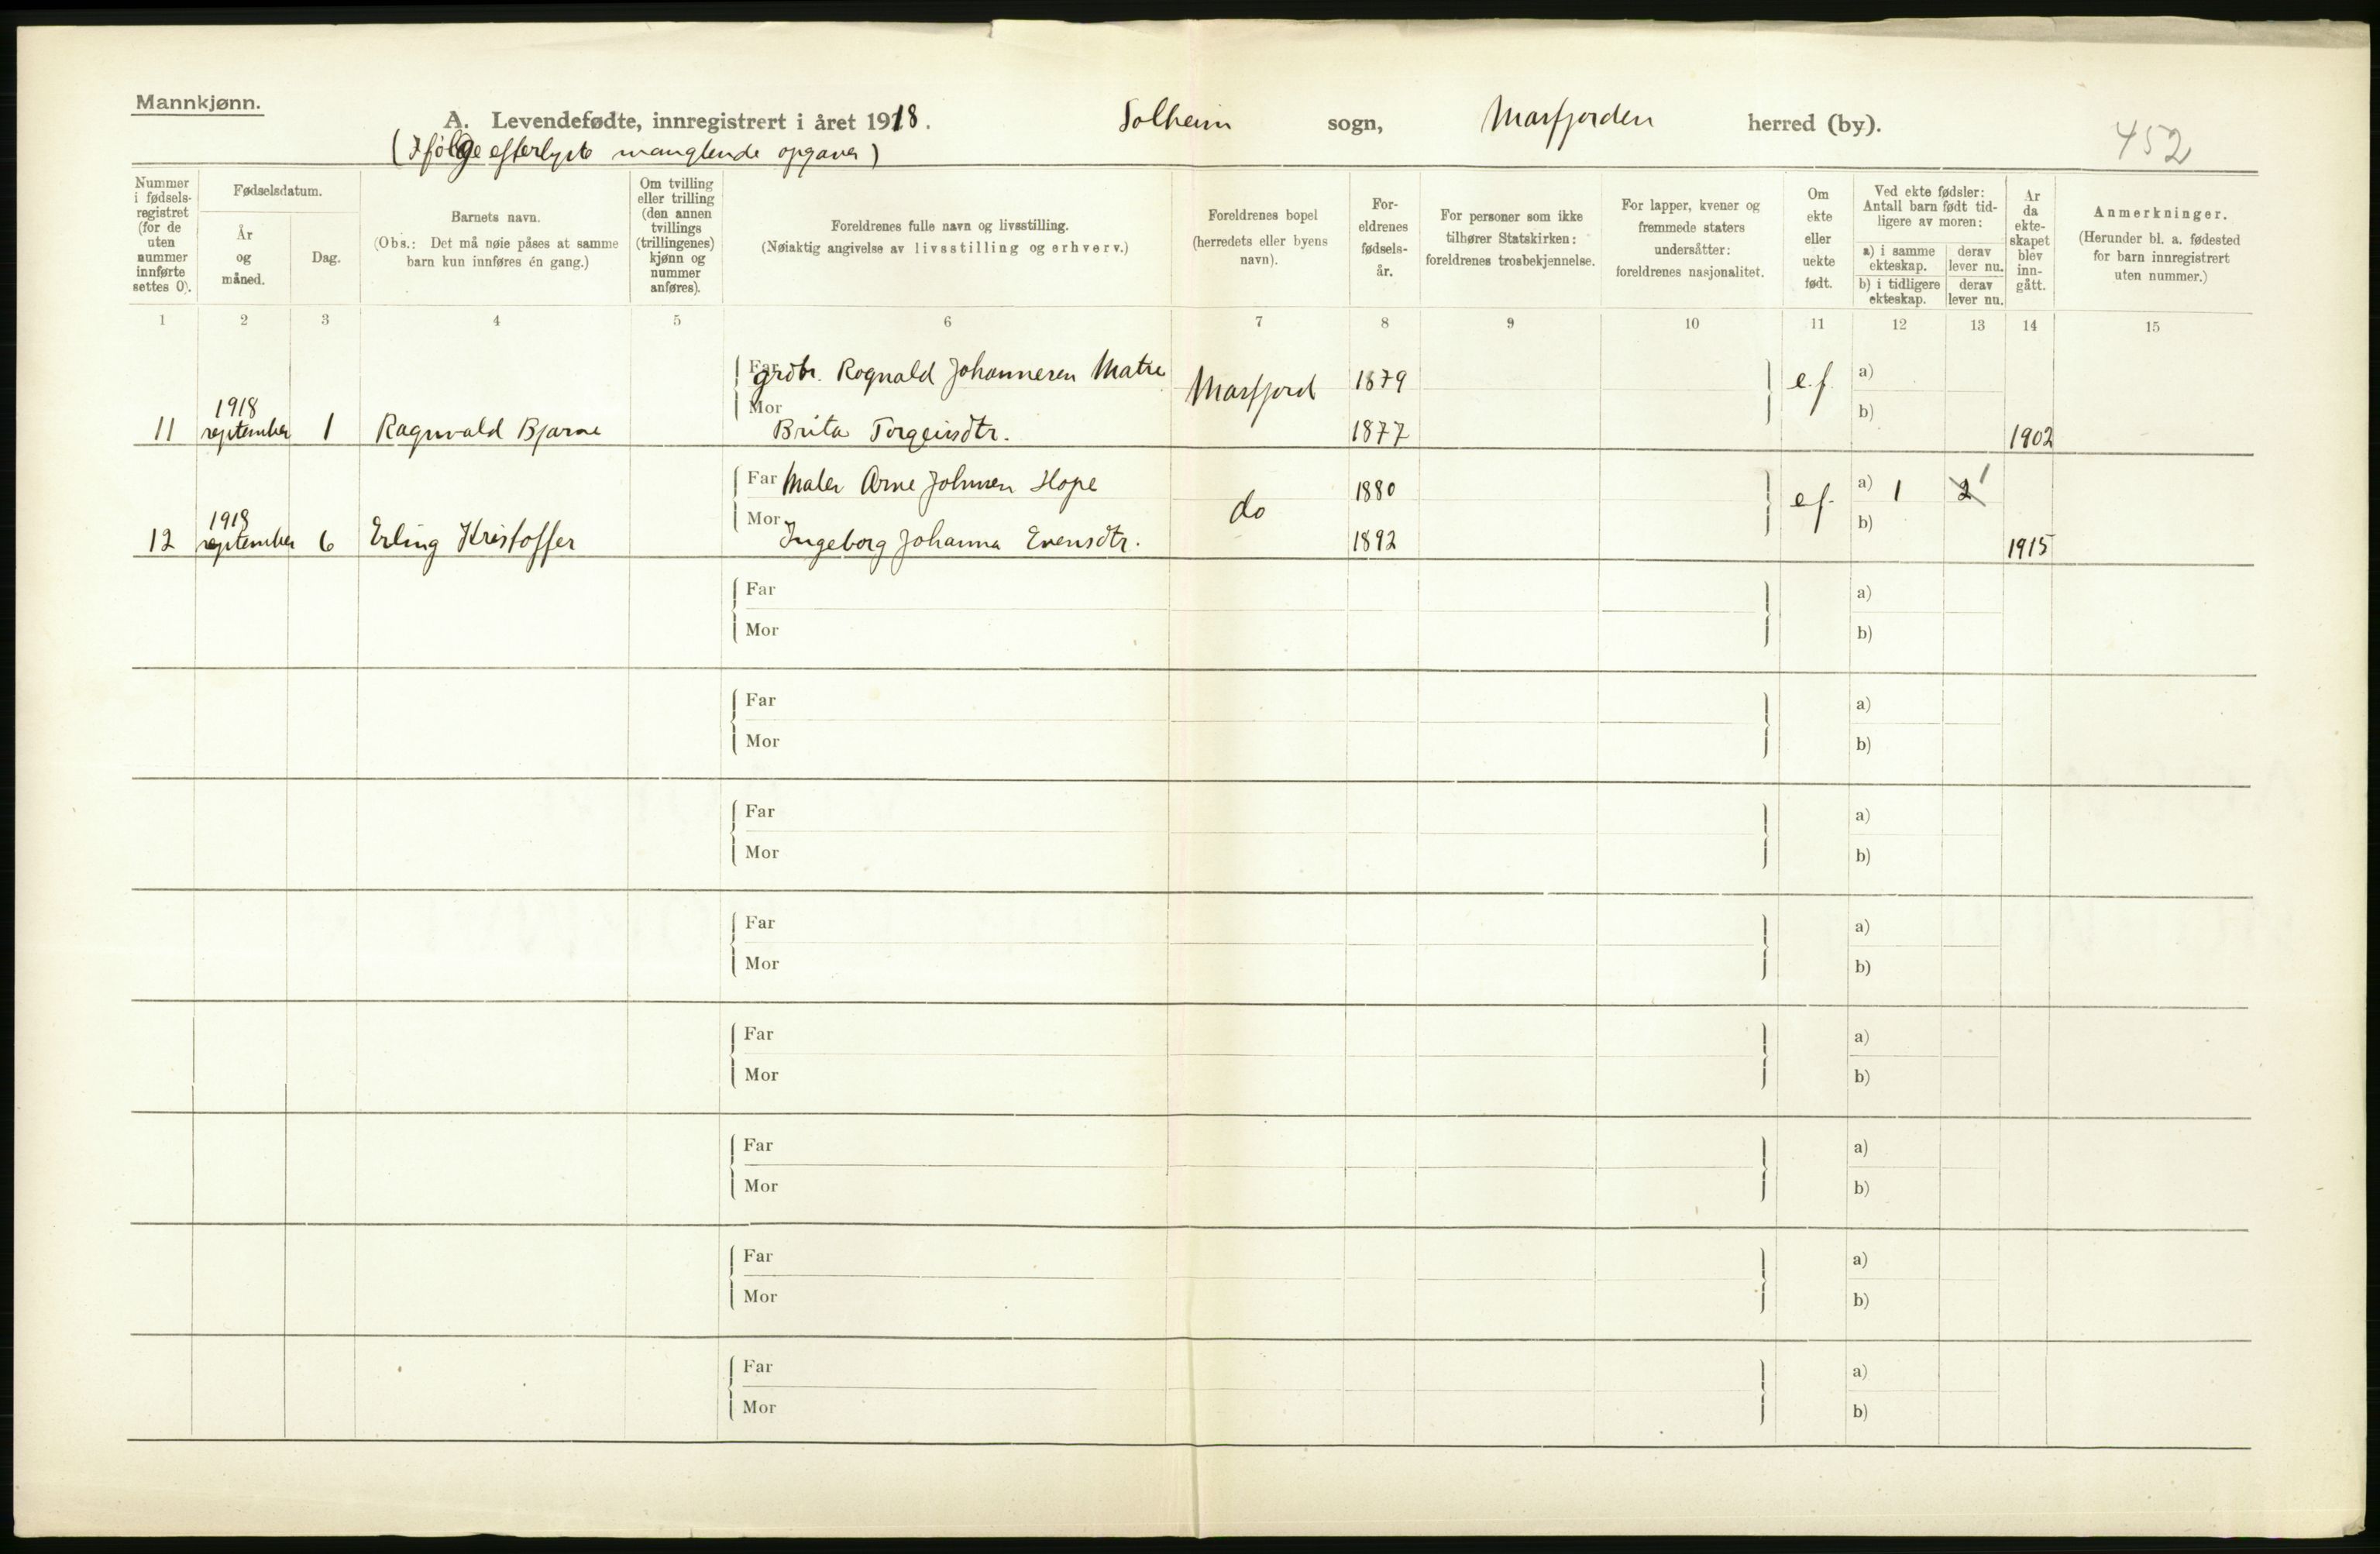 Mannkjønn.
A. Levendefødte, innregistrert i året 1918. Solheim sogn, Masfjorden herred (by).
(Ifølge efterlyste manglende opgaver)
452
Nummer i fødsels-registret (for de uten nummer innførte settes 0).
Fødselsdatum.
År og måned.
Dag.
Barnets navn.
(Obs.: Det må nøie påses at samme barn kun innføres én gang.)
Om tvilling eller trilling (den annen tvillings (trillingenes) kjønn og nummer anføres).
Foreldrenes fulle navn og livsstilling.
(Nøiaktig angivelse av livsstilling og erhverv.)
Foreldrenes bopel (herredets eller byens navn).
For-eldrenes fødsels-år.
For personer som ikke tilhører Statskirken: foreldrenes trosbekjennelse.
For lapper, kvener og fremmede staters undersåtter: foreldrenes nasjonalitet.
Om ekte eller uekte født.
Ved ekte fødsler: Antall barn født tid-ligere av moren:
a) i samme ekteskap. derav lever nu.
b) i tidligere ekteskap. derav lever nu.
År da ekte-skapet blev inn-gått.
Anmerkninger.
(Herunder bl. a. fødested for barn innregistrert uten nummer.)
1 2 3 4 5 6 7 8 9 10 11 12 13 14 15
Far grdbr. Rognald Johannesen Matre Masfjord 1879 e.f. a)
Mor b)
11 1918 september 1 Ragnvald Bjarne Brita Torgeirsdtr. 1877 1902
Far Maler Arne Johnsen Hope do 1880 e.f. a) 1 2 1
Mor b)
12 1918 september 6 Erling Kristoffer Ingeborg Johanna Evensdtr. 1892 1915
Far a)
Mor b)
Far a)
Mor b)
Far a)
Mor b)
Far a)
Mor b)
Far a)
Mor b)
Far a)
Mor b)
Far a)
Mor b)
Far a)
Mor b)